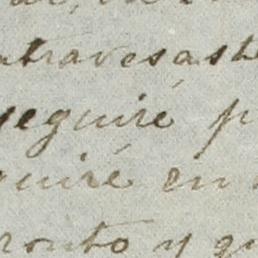 atravesaste
seguiré p
guiré en
pronto y qu